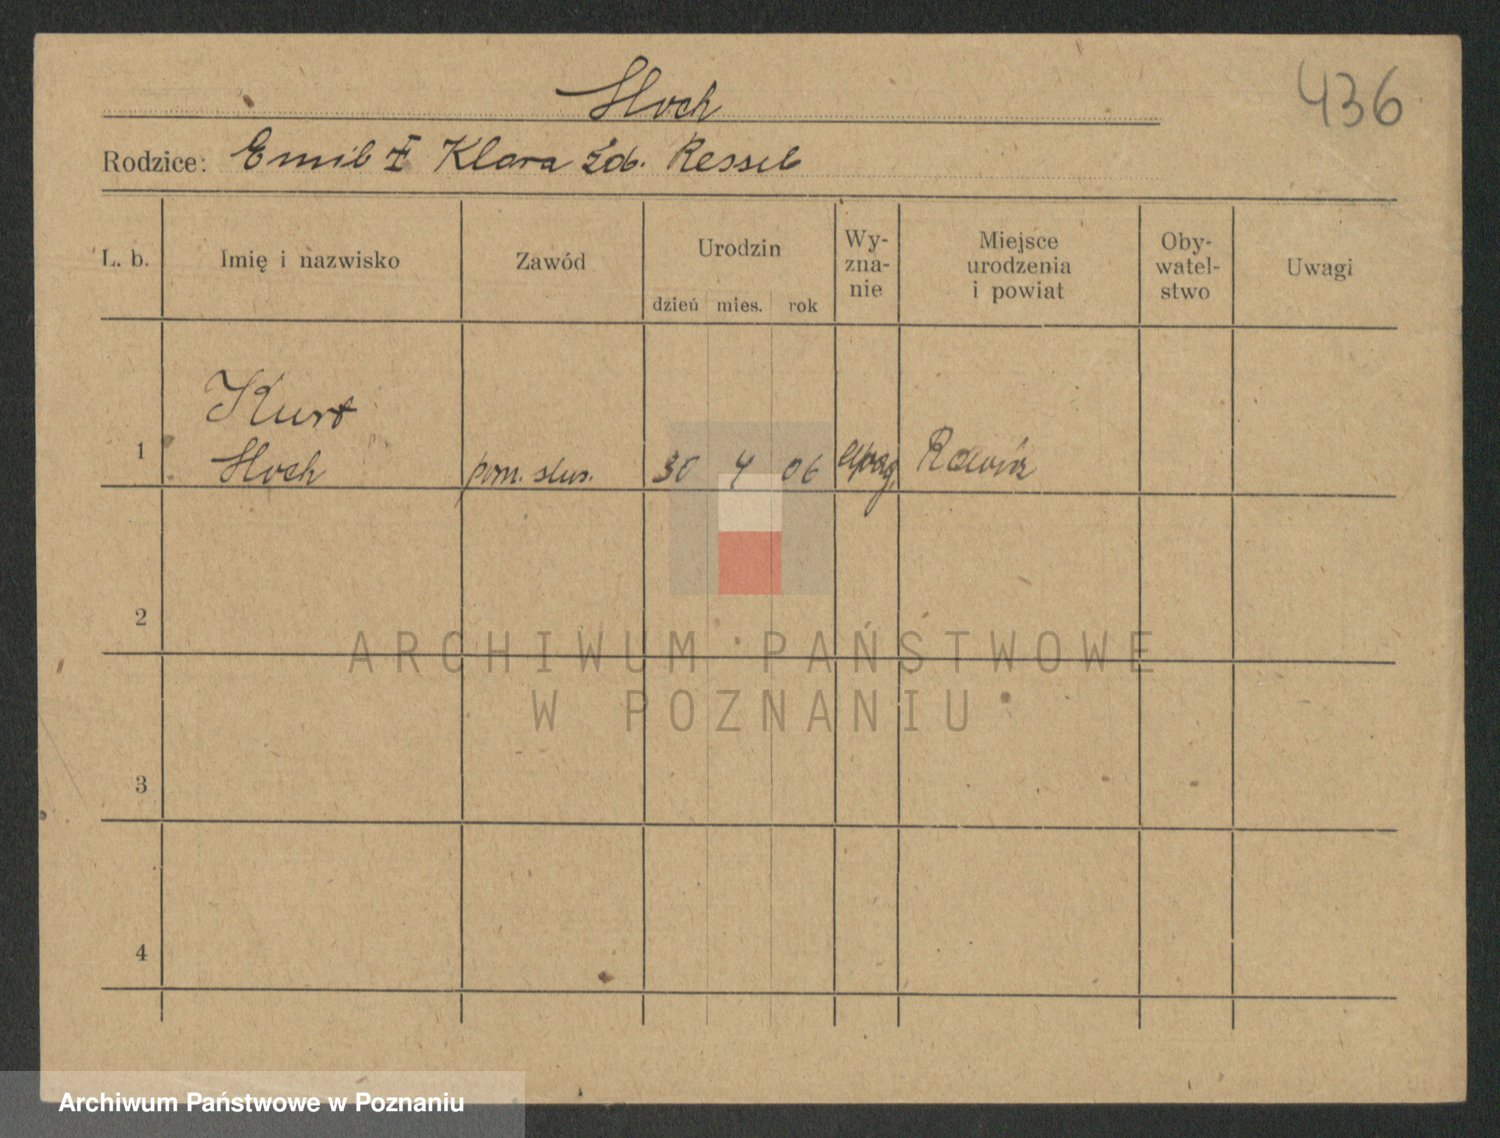 Hoch
436
Rodzice: Emil i Klara zd. Ressel
L. b.
Imię i nazwisko
Zawód
Urodzin
dzień mies. rok
Wy-
zna-
nie
Miejsce
urodzenia
i powiat
Oby-
watel-
stwo
Uwagi
1
Kurt
Hoch
pom. slus.
30 4 06
ewang.
2
3
4
ARCHIWUM PAŃSTWOWE
W POZNANIU
Archiwum Państwowe w Poznaniu